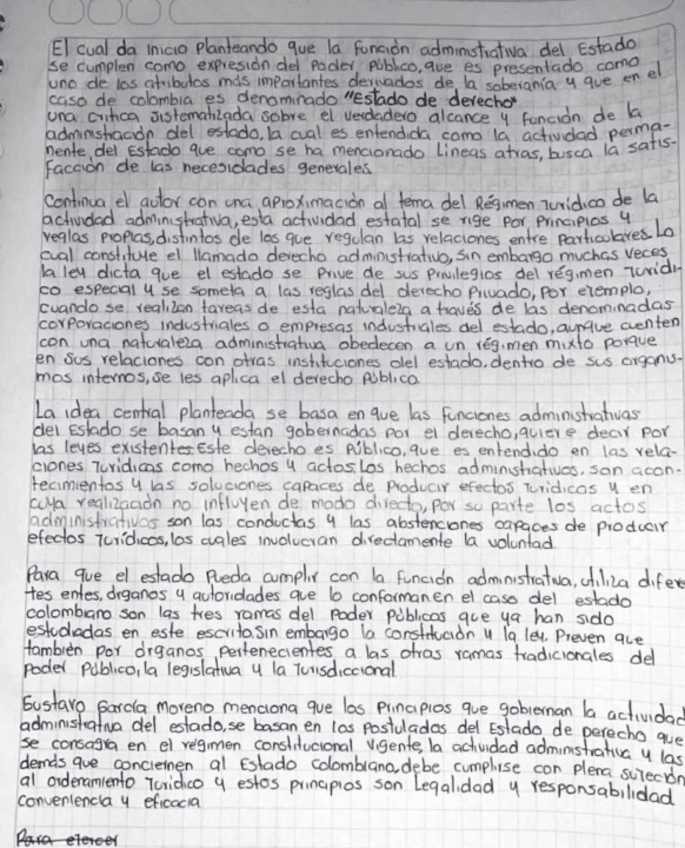 El cual da inicio planteando que la función administrativa del Estado
se cumplen como expresión del Poder Público, que es presentado como
uno de los atributos más importantes derivados de la soberanía y que en el
caso de colombia es denominado "Estado de derecho"
una crítica sistematizada sobre el verdadero alcance y función de la
administración del estado, la cual es entendida como la actividad perma-
nente del Estado que como se ha mencionado Lineas atras, busca la satis-
facción de las necesidades generales
Continua el autor con una aproximación al tema del Régimen Jurídico de la
actividad administrativa, esta actividad estatal se rige por Principios y
reglas propias, distintos de los que regulan las relaciones entre Particulares. Lo
cual constituye el llamado derecho administrativo, sin embargo muchas veces
la ley dicta que el estado se prive de sus privilegios del régimen Jurídi-
co especial y se someta a las reglas del derecho Privado, Por ejemplo,
cuando se realizan tareas de esta naturaleza a través de las denominadas
corporaciones industriales o empresas industriales del estado, aunque cuenten
con una naturaleza administrativa obedecen a un régimen mixto porque
en sus relaciones con otras instituciones del estado, dentro de sus organis-
mos internos, se les aplica el derecho Público
La idea central planteada se basa en que las funciones administrativas
del Estado se basan y estan gobernadas por el derecho, quiere decir por
las leyes existentes Este derecho es Público, que es entendido en las rela-
ciones Jurídicas como hechos y actos, Los hechos administrativos, son acon-
tecimientos y las soluciones capaces de Producir efectos Jurídicos y en
cuya realización no influyen de modo directo, por su parte los actos
administrativos son las conductas y las abstenciones capaces de producir
efectos Jurídicos, los cuales involucran directamente la voluntad
Para que el estado Pueda cumplir con la función administrativa, utiliza difere
tes entes, órganos y autoridades que lo conforman En el caso del estado
colombiano son las tres ramas del Poder Públicos que ya han sido
estudiadas en este escrito. Sin embargo la constitución y la ley Preven que
también por órganos pertenecientes a las otras ramas tradicionales del
poder Público, la legislativa y la Jurisdiccional
Gustavo García Moreno menciona que los Principios que gobiernan la actividad
administrativa del estado, se basan en los postulados del Estado de Derecho que
se consagra en el régimen constitucional vigente, la actividad administrativa y las
demás que conciernen al Estado Colombiano, debe cumplirse con plena sujeción
al ordenamiento Jurídico y estos principios son Legalidad y responsabilidad
conveniencia y eficacia
Para ejercer